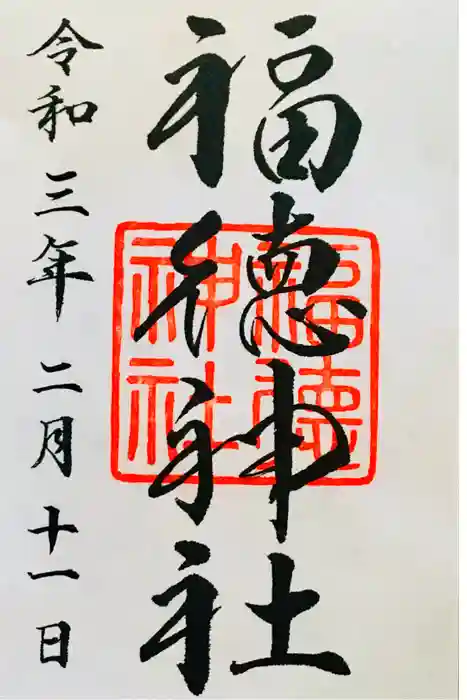 福徳神社
令和三年二月十一日
福徳神社